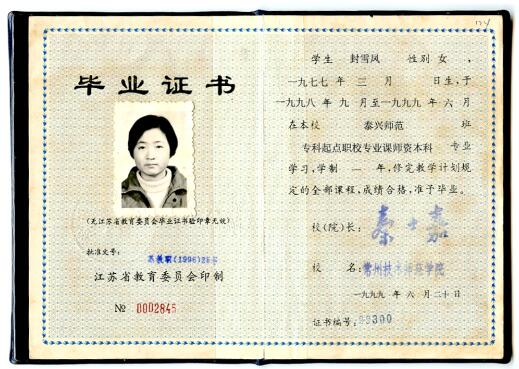 毕业证书
(无江苏省教育委员会毕业证书验印章无效)
批准文号:
苏教职(1996)25号
江苏省教育委员会印制
№ 0002845
学生 封雪凤 性别 女,
一九七七年 三 月 日生,于
一九九八年 九 月至一九九九年 六 月
在本校 泰兴师范 班
专科起点职校专业课师资本科 专业
学习,学制 年,修完教学计划规
定的全部课程,成绩合格,准予毕业。
校(院)长: 秦士嘉
校 名:常州技术师范学院
一九九九 年 六 月 二十 日
证书编号: